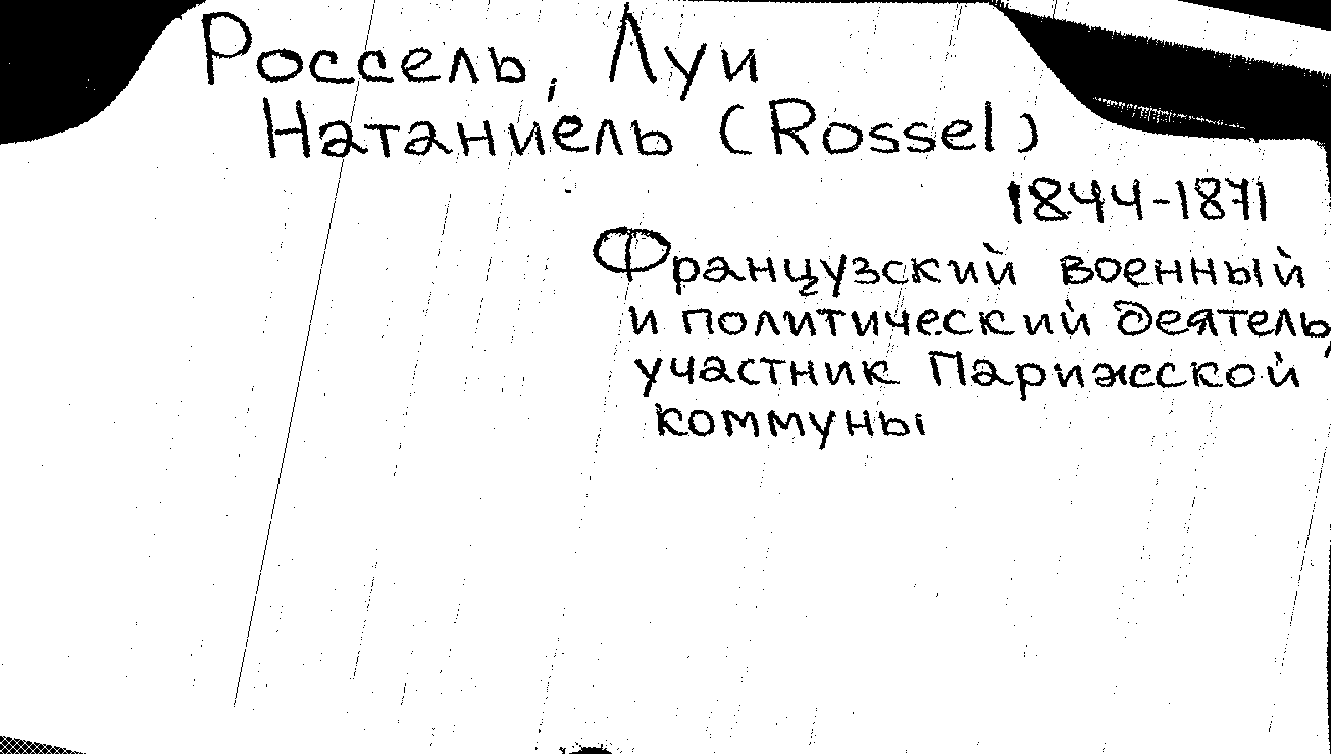 Россель, Луи
Натаниель (Rossel)
1844-1871
Французский военный
и политический деятель,
участник Парижсской
коммуны